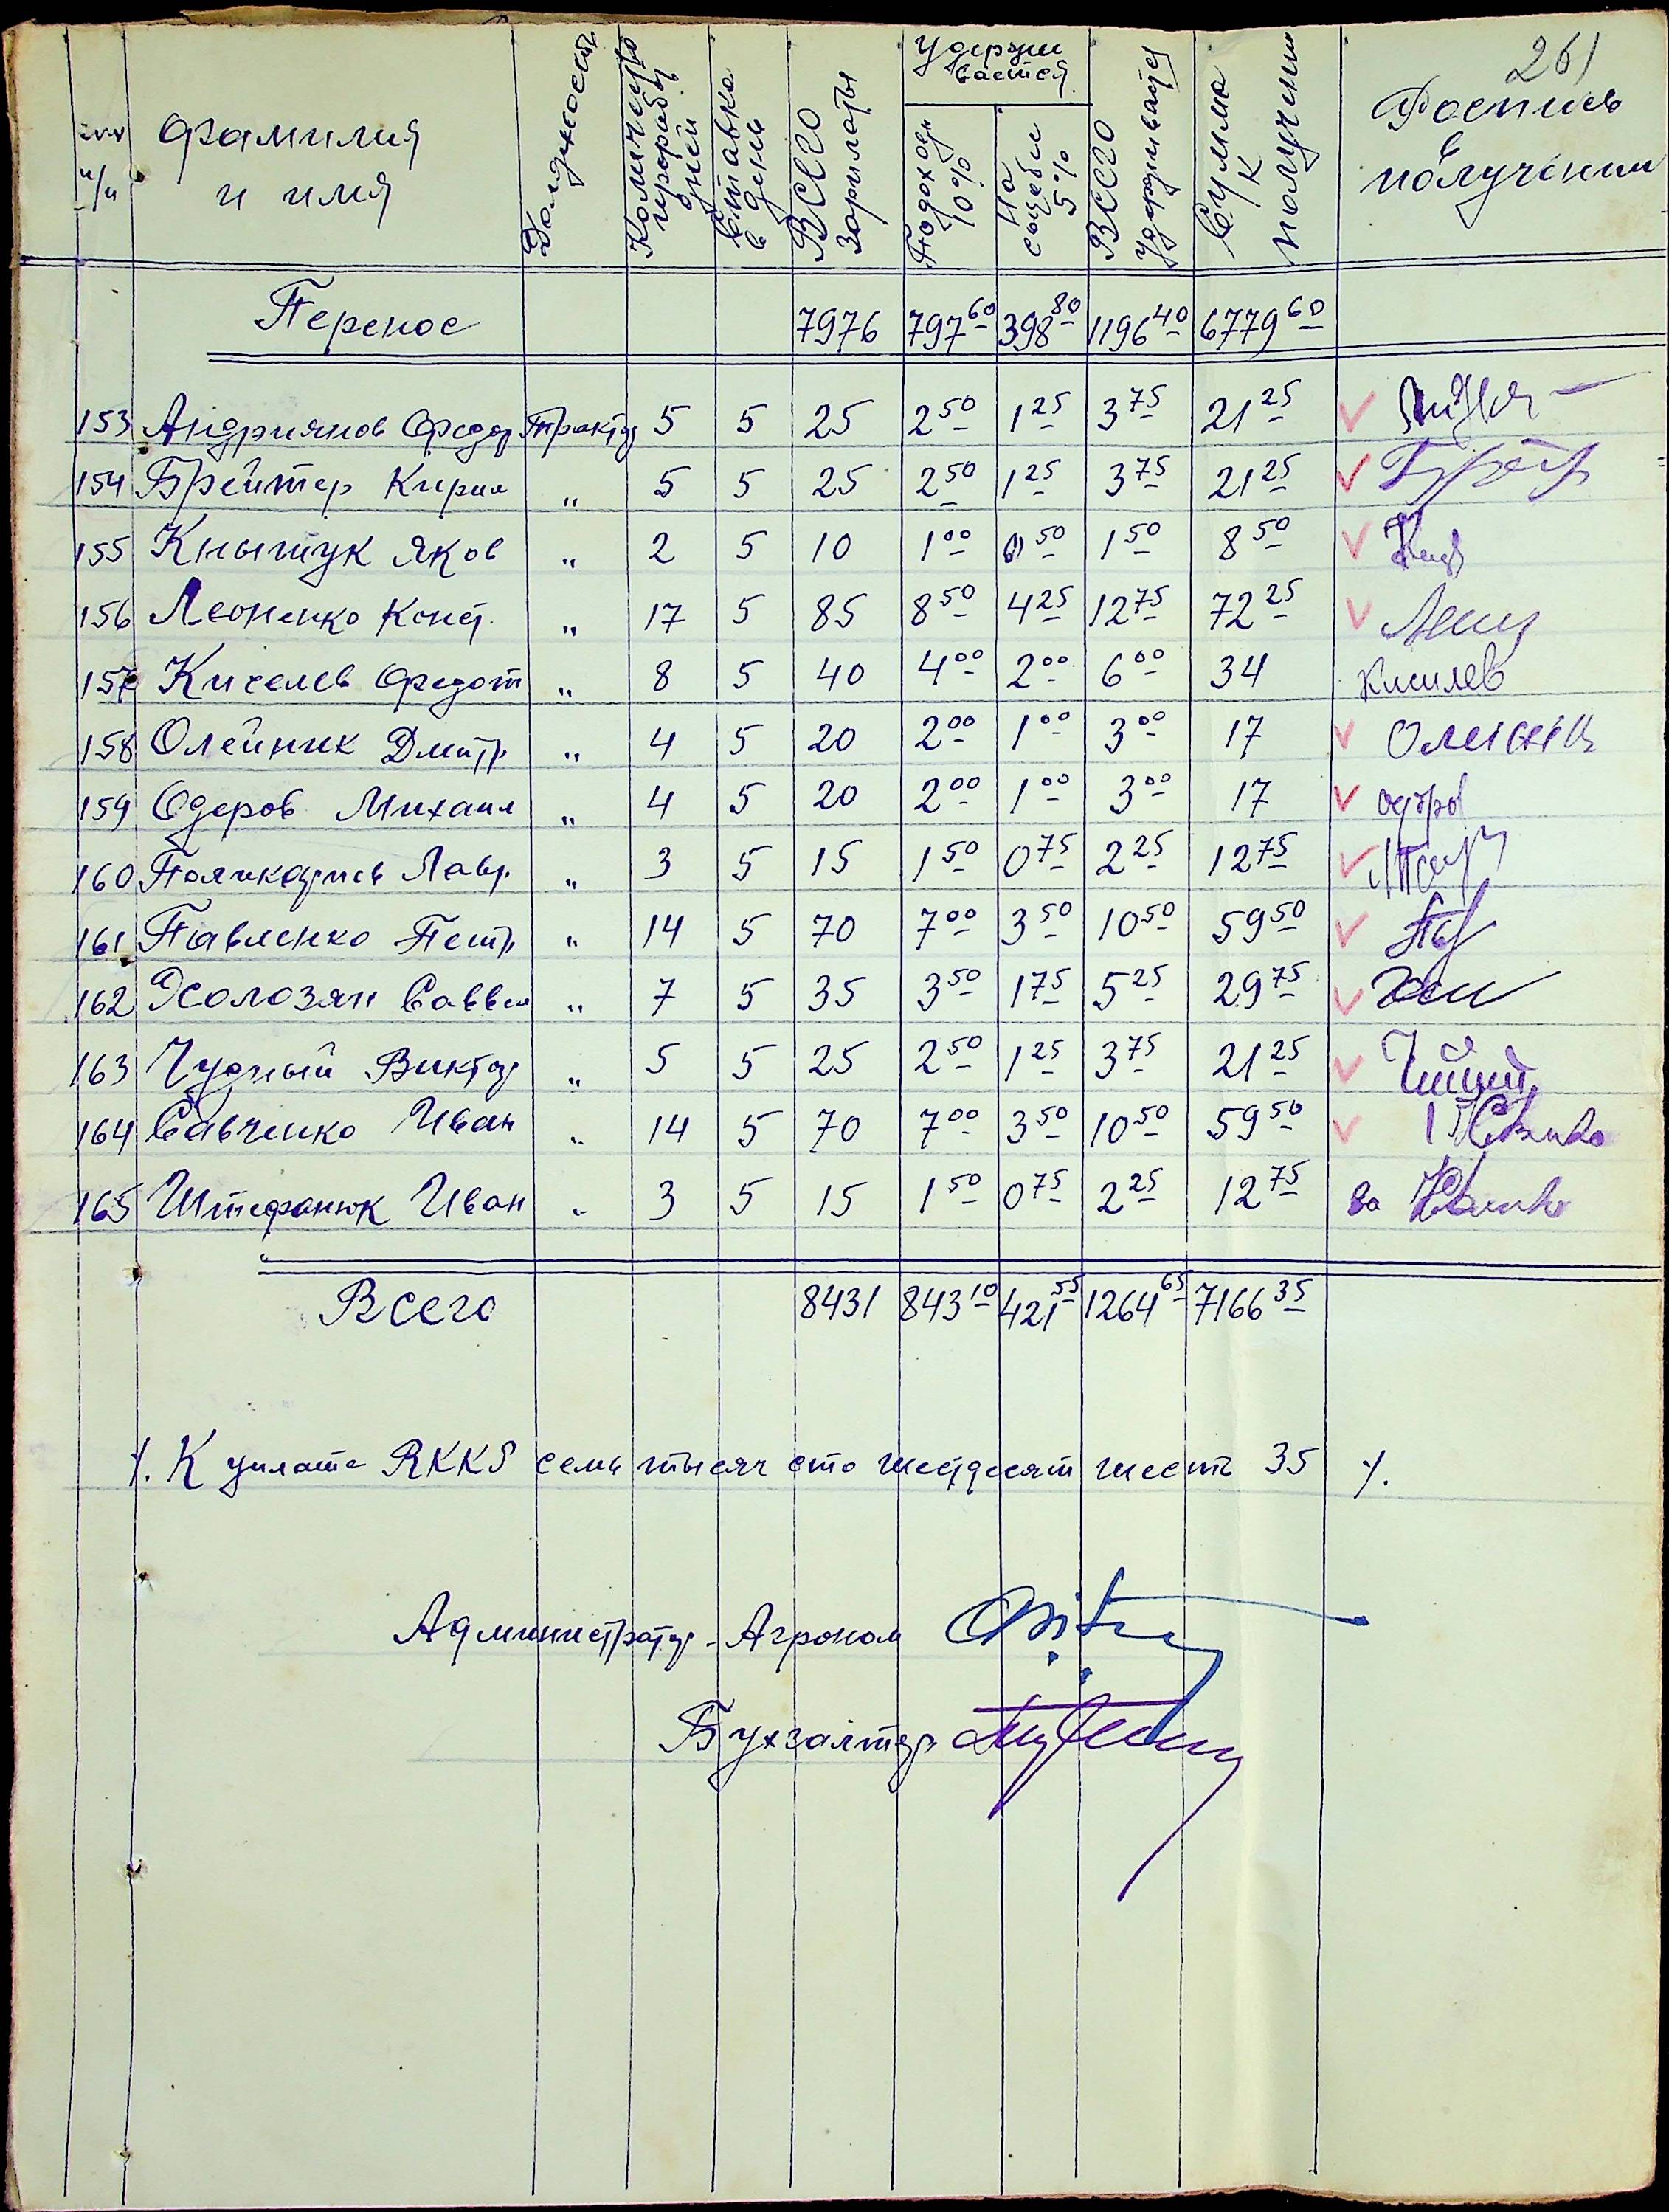 261
№№ п/п Фамилия и имя Должность Количество прораб. дней Ставка в день Всего зарплаты Удерживается Подоходн 10% На соцобес 5% Всего удерживается Сумма к получению Роспись в получении
Перенос 7976 797 60 398 80 1196 40 6779 60
153 Андриянов Федор Трактор 5 5 25 2 50 1 25 3 75 21 25 ✓
154 Брейтер Кирил " 5 5 25 2 50 1 25 3 75 21 25 ✓
155 Кнытук Яков " 2 5 10 1 00 0 50 1 50 8 50 ✓
156 Леоненко Конст. " 17 5 85 8 50 4 25 12 75 72 25 ✓
157 Киселев Федот " 8 5 40 4 00 2 00 6 00 34 Кисилев
158 Олейник Дмитр " 4 5 20 2 00 1 00 3 00 17 ✓
159 Одеров Михаил " 4 5 20 2 00 1 00 3 00 17 ✓
160 Лавр. " 3 5 15 1 50 0 75 2 25 12 75 ✓
161 Павленко Петр " 14 5 70 7 00 3 50 10 50 59 50 ✓
162 " 7 5 35 3 50 1 75 5 25 29 75 ✓
163 Чудный Виктор " 5 5 25 2 50 1 25 3 75 21 25 ✓
164 Савченко Иван " 14 5 70 7 00 3 50 10 50 59 50 ✓
165 Штефанюк Иван " 3 5 15 1 50 0 75 2 25 12 75 за
Всего 8431 843 10 421 55 1264 65 7166 35
К уплате RKKS семь тысяч сто шестдесят шесть 35
Администратор - Агроном
Бухгалтер